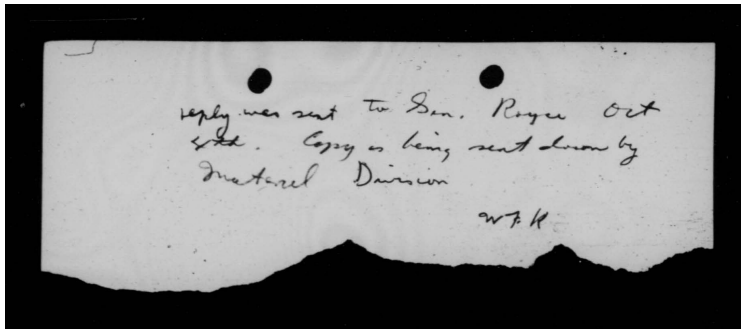 reply was sent to Gen. Royce Oct
Copy is being sent down by
Materiel Division
WFK